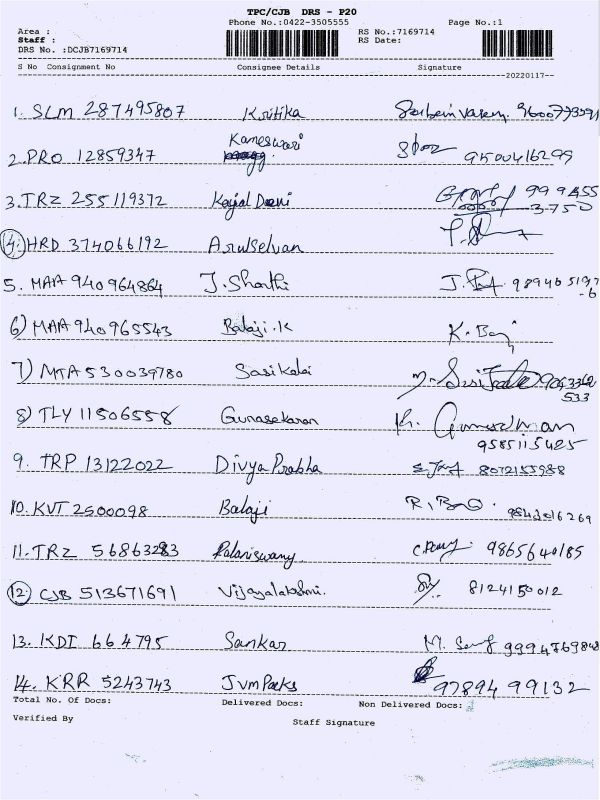 TPC/CJB DRS - P20
Phone No.:0422-3505555 Page No.:1
Area :
Staff :
RS No.:7169714
RS Date:
DRS No. :DCJB7169714
S No Consignment No Consignee Details Signature
20220117--
1. SLM 287495807 Kritika 9600773591
2. PRO 12859347 Kaneswari 9500416299
3. TRZ 255119372 Kajal Devi 999455
3750
4. HRD 374066192 Arulselvan
5. MAA 940964864 J. Sharthi J. 989405197
-6
6) MAA 940965543 Balaji.K K. Baj
7) MTA 530039780 Sasikalai
533
8) TLY 11506558 Gunasekaran K.
9585115425
9. TRP 13122022 Divya Prabha 8072155988
10. KVT 2500098 Balaji R.
11. TRZ 56863283 Palaniswamy 9865640185
12. CJB 513671691 Vijayalakshmi. 8124150012
13. KDI 664795 Sankar M. 9994769848
14. KRR 5243743 Jvm Parks 9789499132
Total No. Of Docs: Delivered Docs: Non Delivered Docs:
Verified By Staff Signature